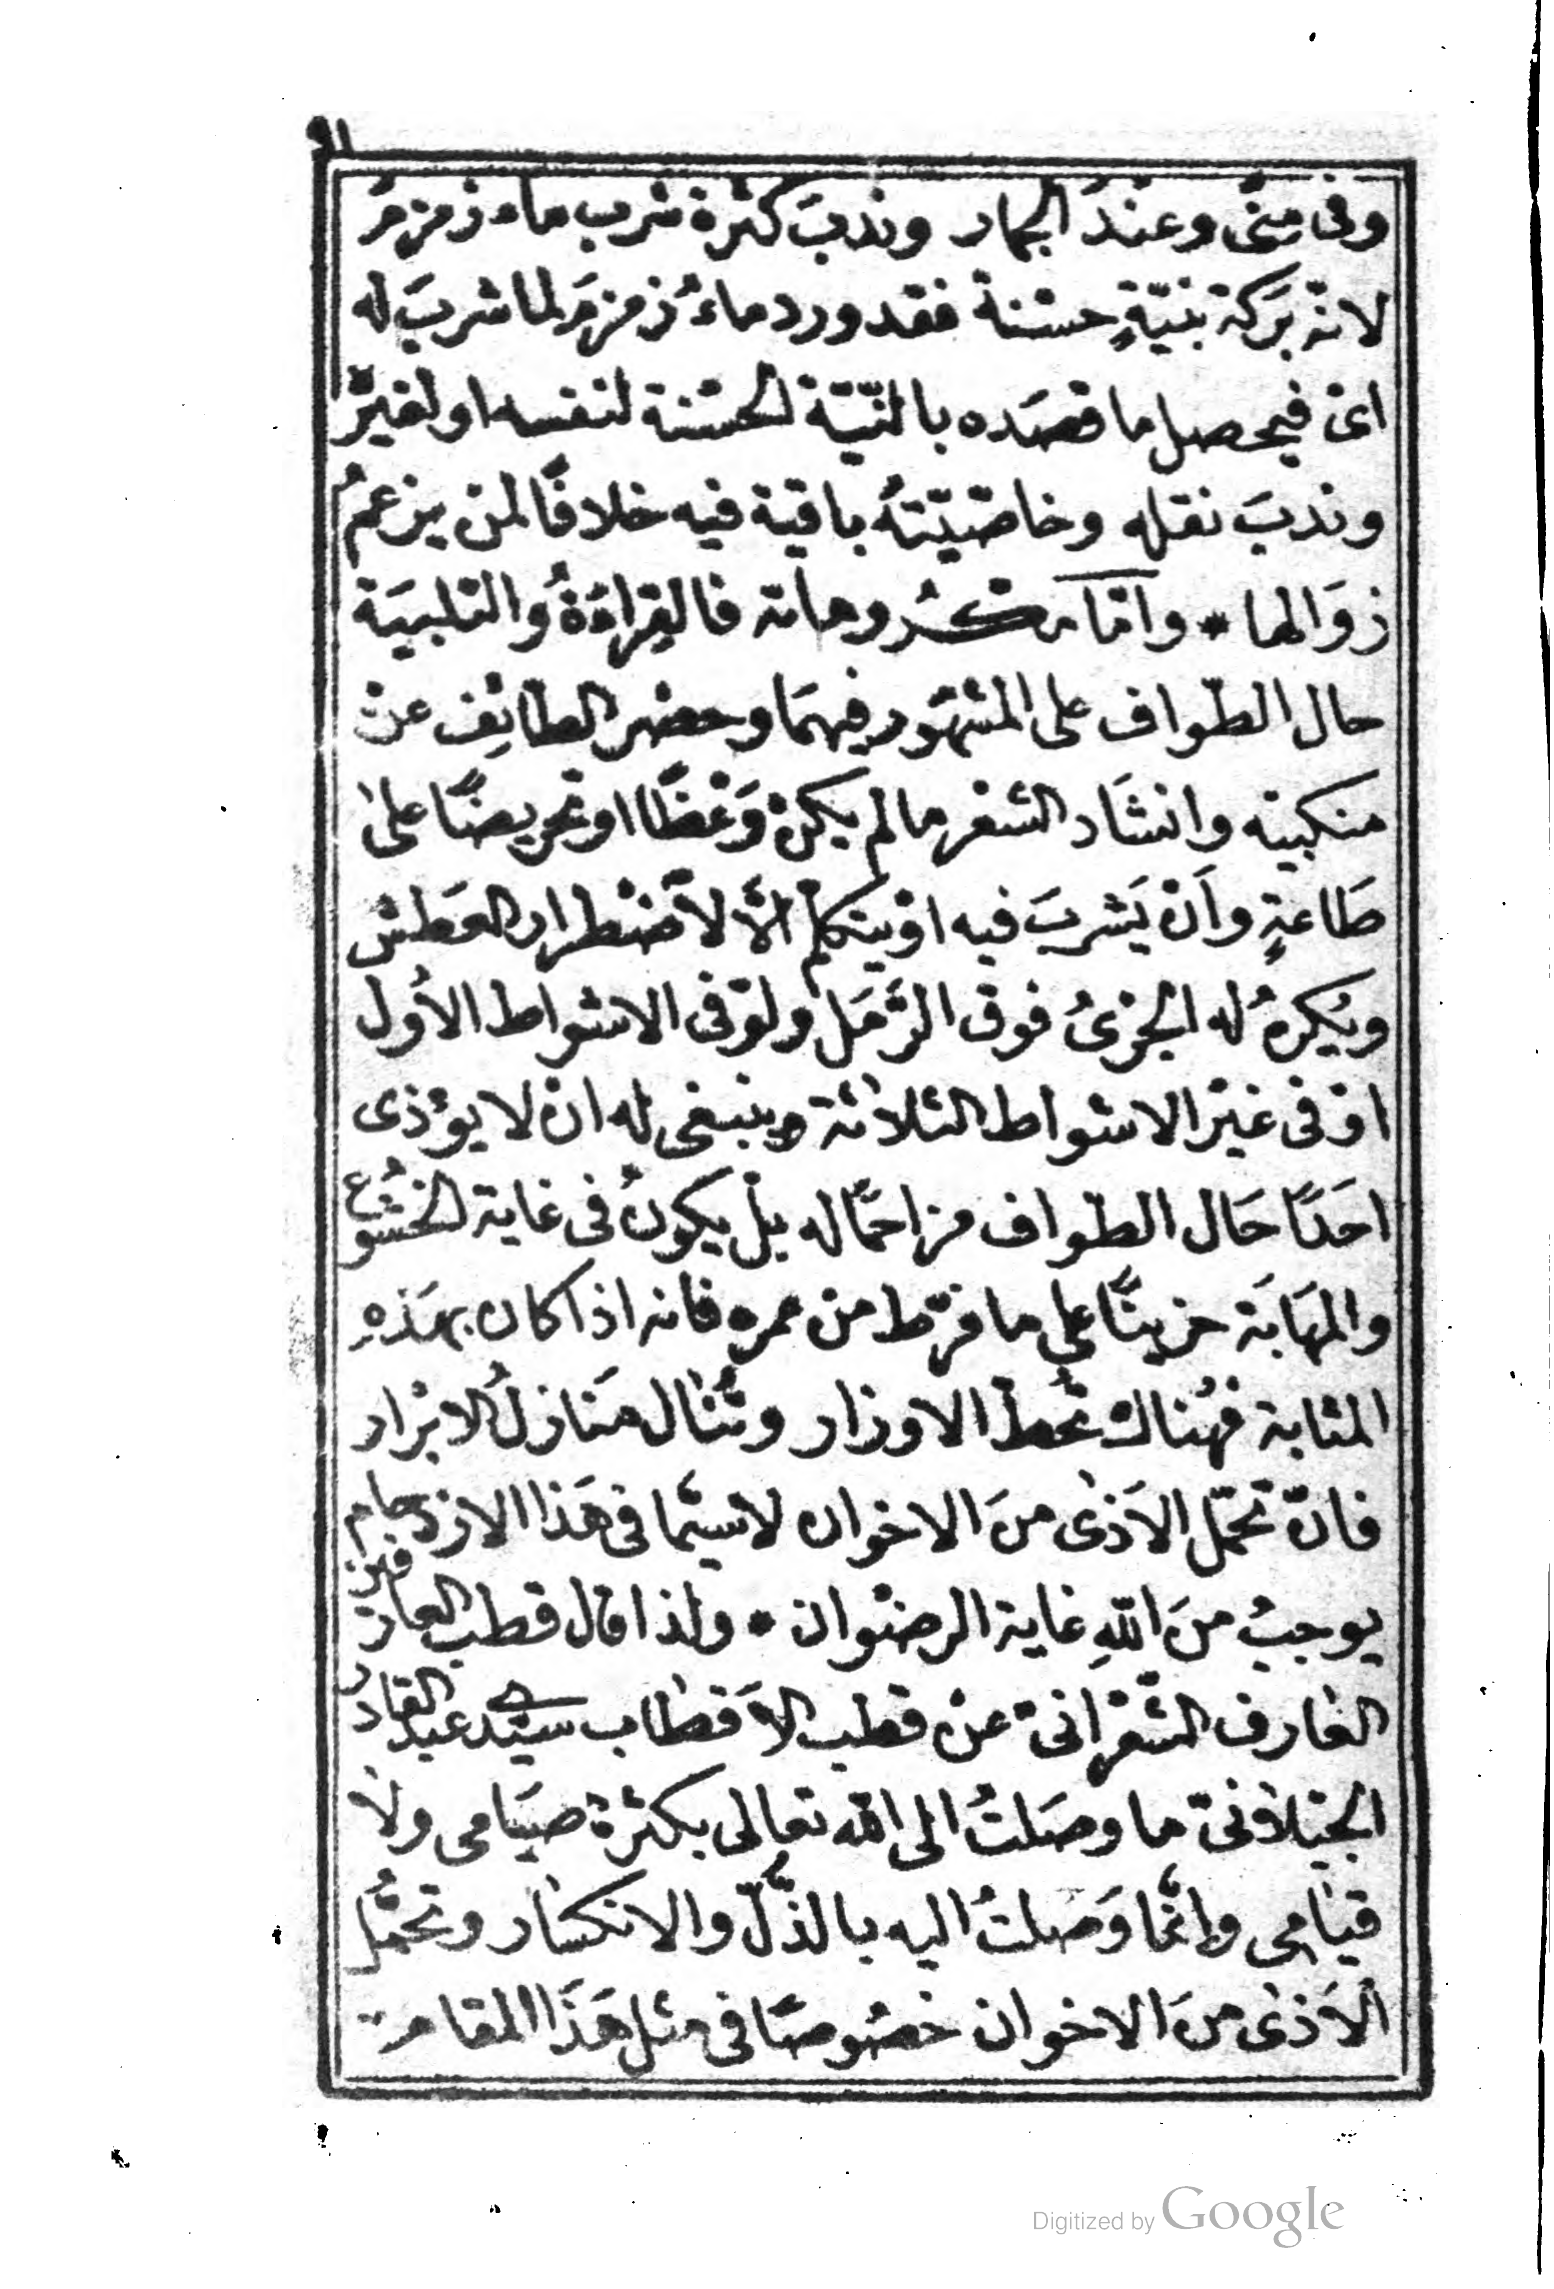 ٩١
وفى مِنًى وعنْدَ الجمار ونُدبَ كثرة شرب ماء زمزمَ
لانّه بَرَكة بنيّةٍ حسَنة فقد ورد ماءُ زمزمَ لما شربَ له
اىْ فيحصل ما قصَده بالنيّة الحسَنة لنفسه او لغيرْه
وندبَ نقله وخاصّيّتهُ باقية فيه خلافًا لمن يزعمُ
زوَالها * وامّا مكرُوهاته فالقِراءَةُ والتلبيَة
حال الطّواف على المشهور فيهمَا وحضر الطّائِف عنْ
منكبيْه وانشَاد الشعْر ما لم يكنْ وَعْظًا او تحريضًا على
طَاعةٍ واَنْ يَشربَ فيه اوْ يتكلمْ الّا لاضْطرار العَطش
ويُكرهُ له الجرْىُ فوق الرّمَل ولوْ فى الاشواط الاُول
اوْ فى غيْر الاشواط الثلاثة وينبغى له انْ لا يؤذى
احَدًا حَال الطّواف مزاحمًا له بلْ يكونُ فى غاية الخشُوع
والمهَابَة حزينًا على ما فرّط من عمره فانه اذا كان بهَذهِ
المثابة فهُناك تُحطّ الاوزار وتُنال مَنازلُ الابرْار
فانّ تحمّل الاَذى منَ الاخوان لاسيّما فى هَذا الازدحام
يوجبُ منَ اللهِ غاية الرضْوان * ولذا قال قطب العارفين
العَارف الشّعْرانىّ عنْ قطب الاَقطاب سيّدى عبد القادر
الجيْلانىّ ما وصَلتُ الى الله تعالى بكثرة صيَامى ولا
قيَامى وانّما وَصَلتُ اليه بالذّلّ والانكسَار وتحمُّل
الاَذى منَ الاخوان خصُوصًا فى مثل هَذَا المقام
Digitized by Google